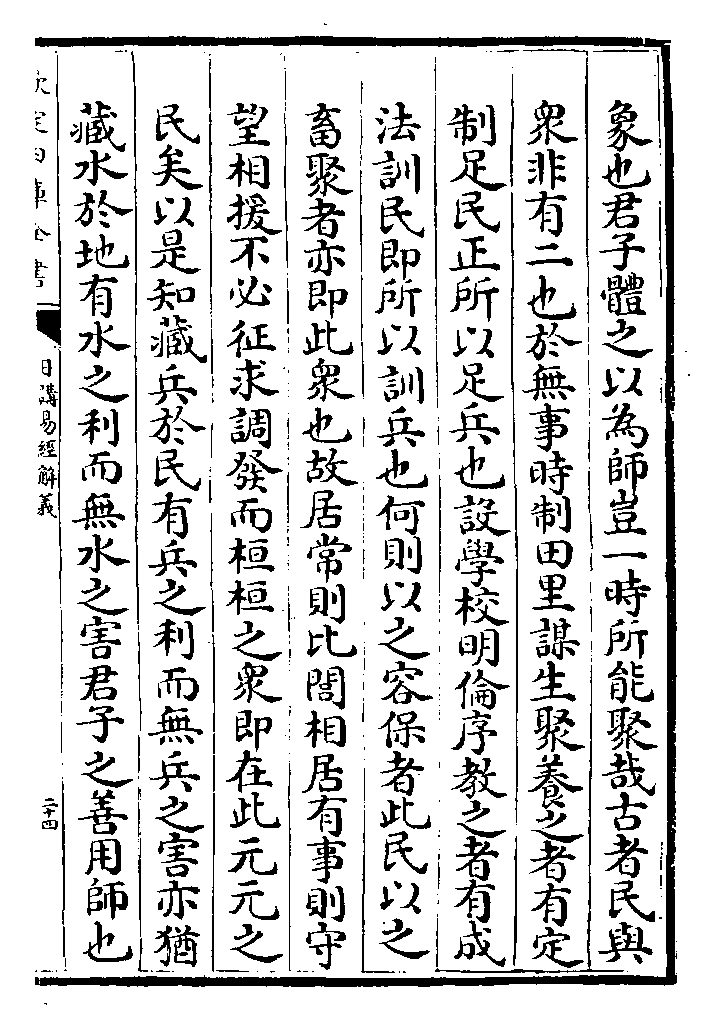 象也君子體之以為師豈一時所能聚哉古者民與
衆非有二也於無事時制田里謀生聚養之者有定
制足民正所以足兵也設學校明倫序教之者有成
法訓民即所以訓兵也何則以之容保者此民以之
畜聚者亦即此衆也故居常則比閭相居有事則守
望相援不必征求調發而桓桓之衆即在此元元之
民矣以是知藏兵於民有兵之利而無兵之害亦猶
藏水於地有水之利而無水之害君子之善用師也
欽定四庫全書
日講易經解義
二十四